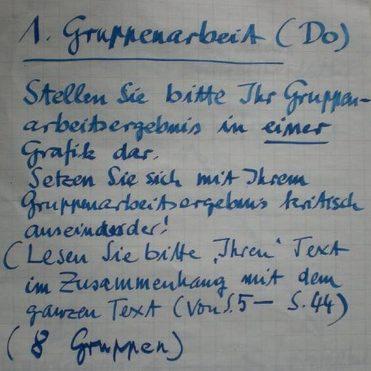 1. Gruppenarbeit (Do)
Stellen Sie bitte Ihr Gruppen-
arbeitsergebnis in einer
Grafik dar.
Setzen Sie sich mit Ihrem
Gruppenarbeitsergebnis kritisch
auseinander!
(Lesen Sie bitte „Ihren“ Text
im Zusammenhang mit dem
ganzen Text (von S. 5 – S. 44)
(8 Gruppen)